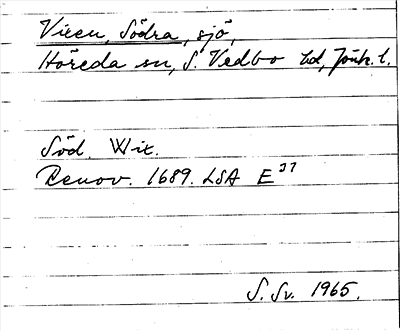 Vixen, Södra, sjö,
Höreda sn, S. Vedbo hd, Jönk. l.
Söd. Wix.
Renov. 1689. LSA E 37
S. Sv. 1965.